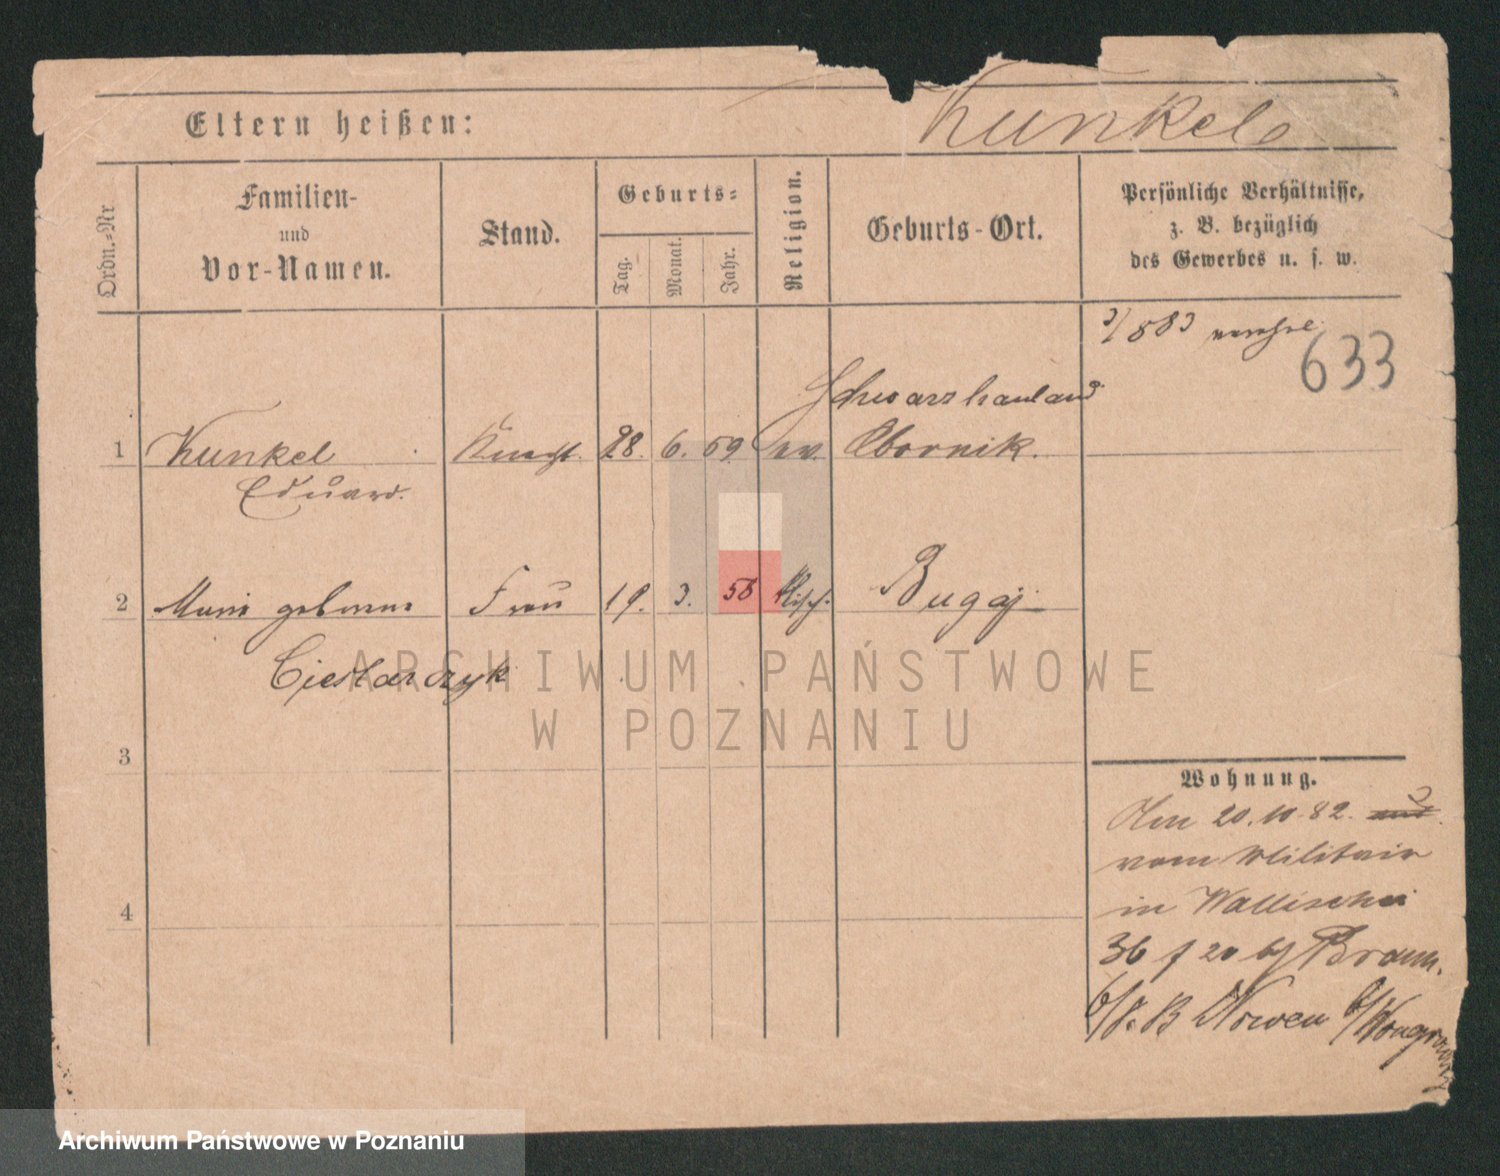 Eltern heißen:
Kunkel
Ordn.-Nr
Familien-
und
Vor-Namen.
Stand.
Geburts-
Tag.
Monat.
Jahr.
Religion.
Geburts-Ort.
Persönliche Verhältnisse,
z. B. bezüglich
des Gewerbes u. s. w.
633
Schwarzhauland
1 Kunkel Knecht 28. 6. 59 ev. Obornik.
Eduard.
2 Marie geborene Frau 19. 3. 56 Bugaj
Cieslarczyk
3
4
Wohnung.
20.10.82.
vom Militair
in Wallischei
36 20 Braun.
Nowen
ARCHIWUM PAŃSTWOWE
W POZNANIU
Archiwum Państwowe w Poznaniu